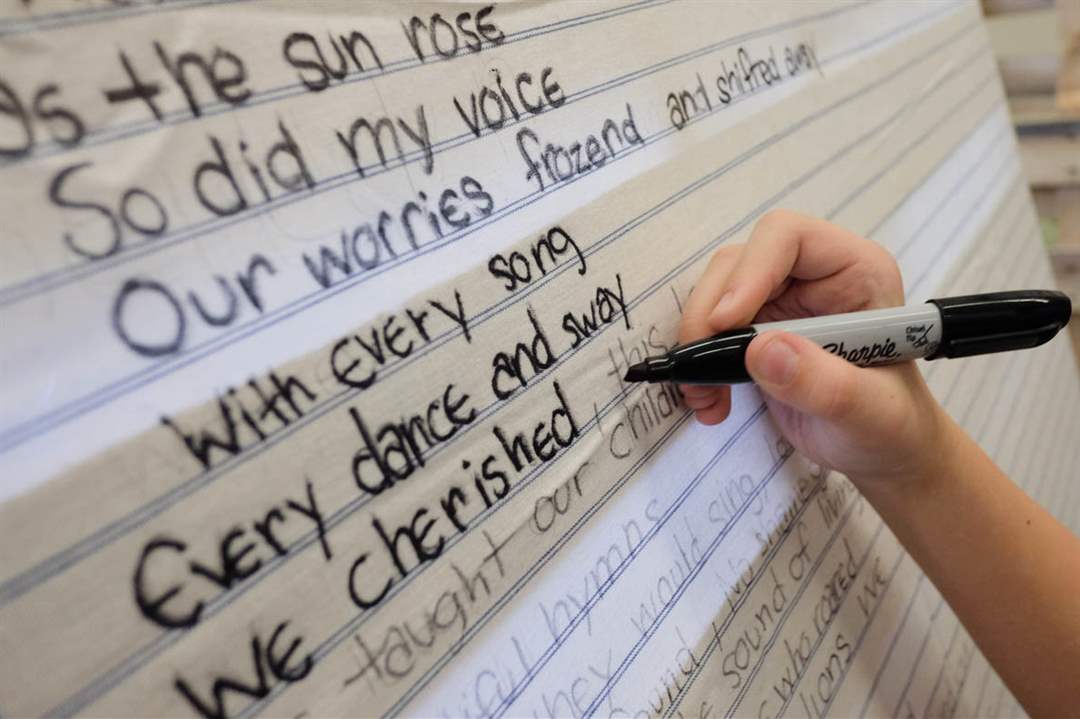 As the sun rose
So did my voice
Our worries frozend and shifred away
With every song
Every dance and sway
We cherished this
taught our child
hymns
they would sing,
No
sound of living
who cared
ions we
Sharpie